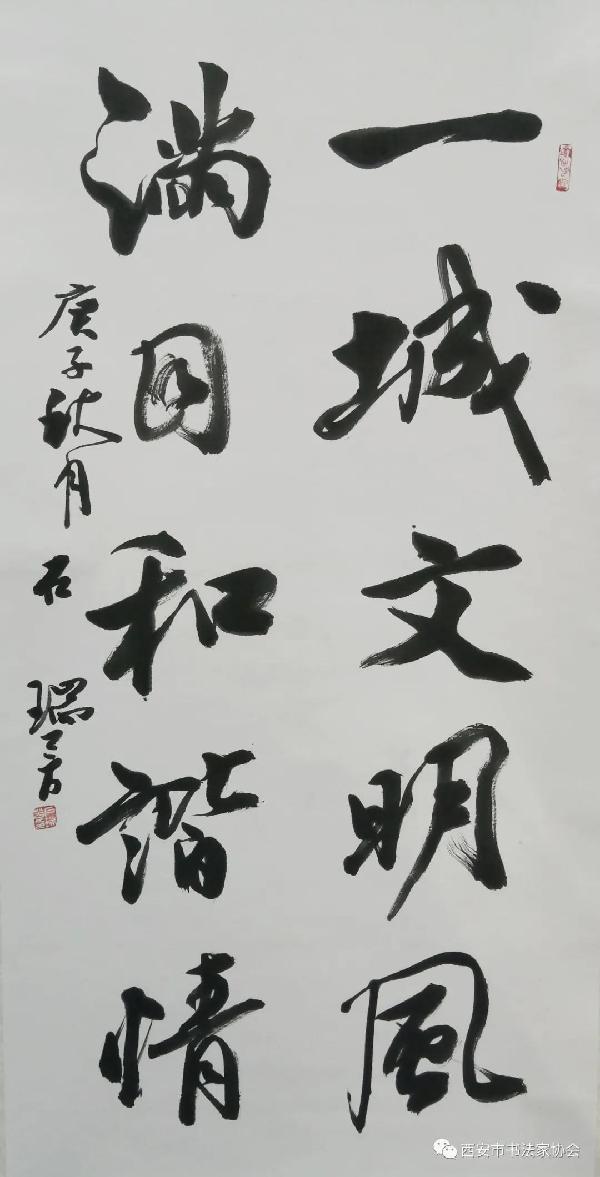 一城文明風
滿目和諧情
庚子秋月
石瑞芳
西安市书法家协会